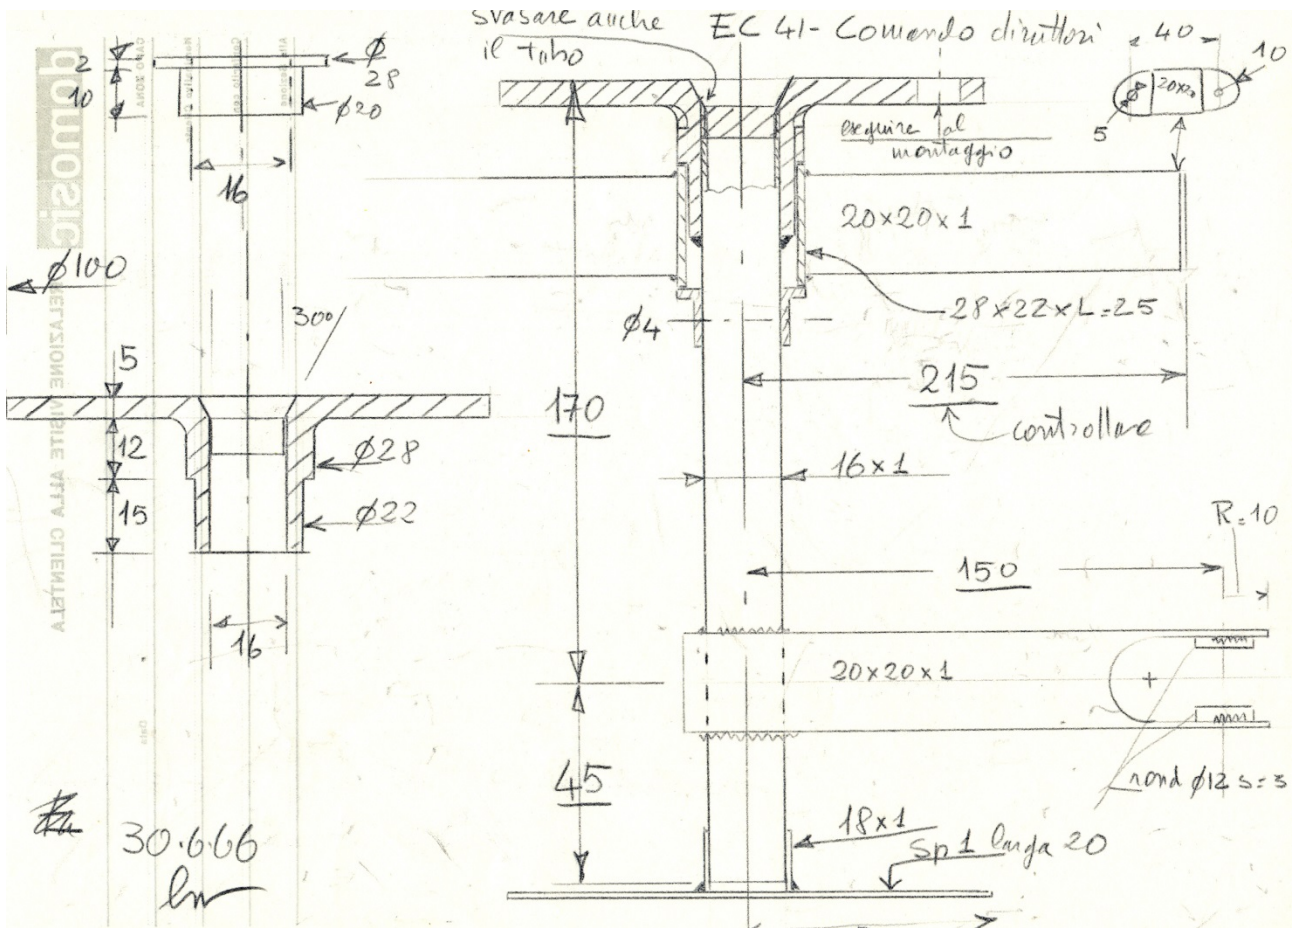 svasare anche
il tubo
EC 41 - Comando direttori
40
10
20x20
5
2
10
ϕ
28
ϕ20
16
eseguire al
montaggio
20x20x1
ϕ100
28x22xL=25
ϕ4
30°
5
12
15
ϕ28
ϕ22
16
170
215
controllare
16x1
R=10
150
20x20x1
45
rond ϕ12 s=3
18x1
Sp 1 larga 20
30.6.66
domosic
CAPO ZONA
RELAZIONE VISITE ALLA CLIENTELA